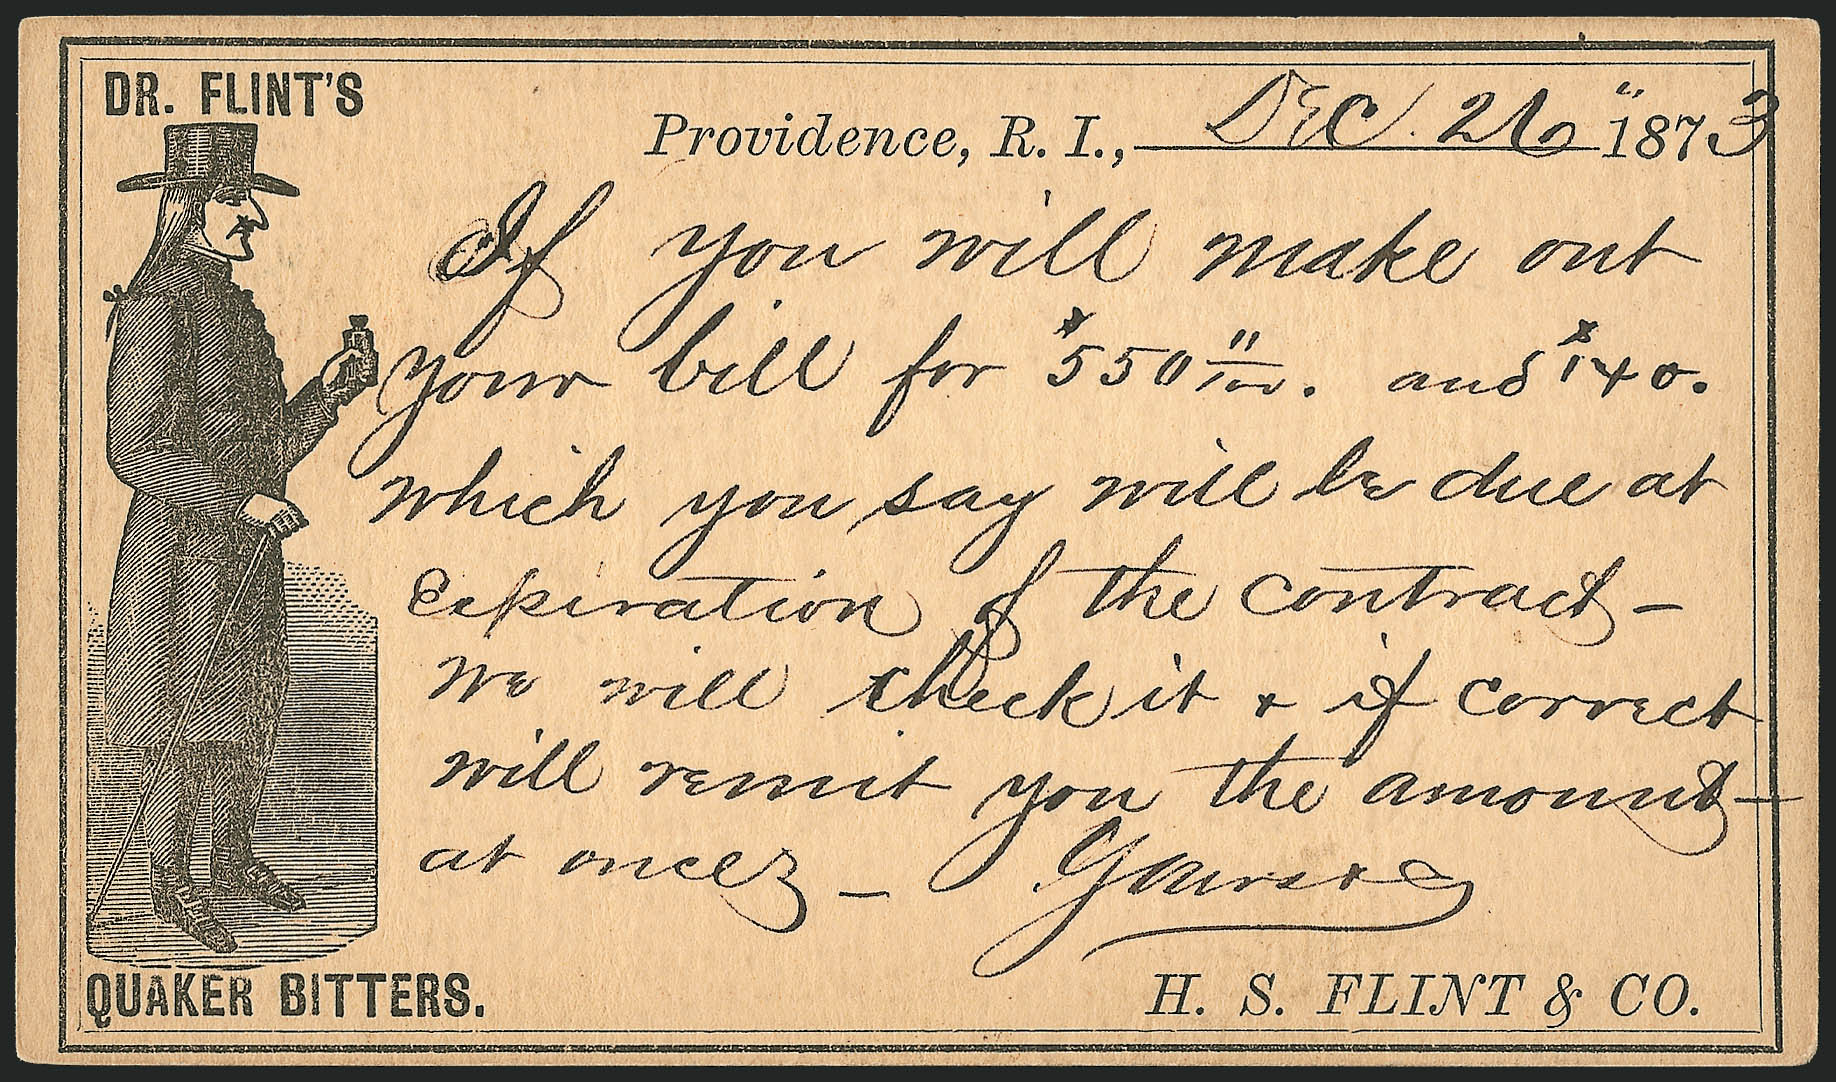 DR. FLINT'S
Providence, R. I., Dec. 26" 1873
If you will make out
your bill for $550 11/100. and $140.
which you say will be due at
Expiration of the contract –
we will check it & if correct
will remit you the amount –
at once –  Yours &c
H. S. FLINT & CO.
QUAKER BITTERS.